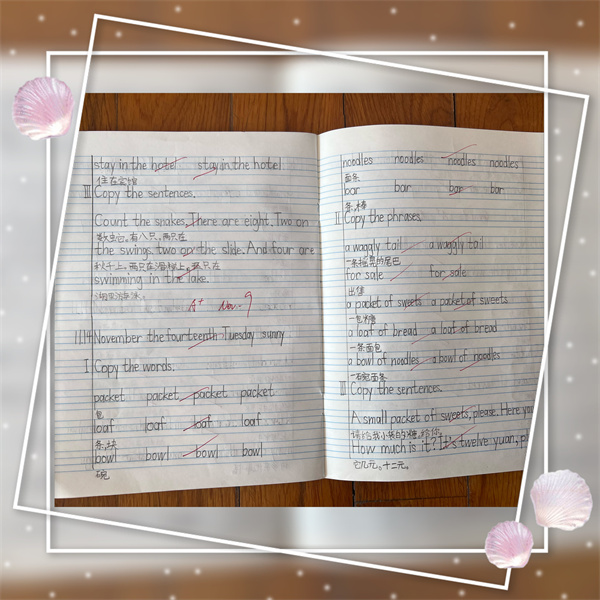 stay in the hotel stay in the hotel
住在宾馆
III Copy the sentences.
Count the snakes. There are eight. Two on
数虫包,有八只,两只在
the swings. two on the slide. And four are
秋千上,两只在滑梯上,四只在
swimming in the lake.
A+ Nov. 9
11.14 November the fourteenth Tuesday sunny
I Copy the words.
packet packet packet packet
包
loaf loaf loaf loaf
条,块
bowl bowl bowl bowl
碗
noodles noodles noodles noodles
面条
bar bar bar bar
条,棒
II Copy the phrases.
a waggly tail a waggly tail
一条摇晃的尾巴
for sale for sale
出售
a packet of sweets a packet of sweets
一包糖
a loaf of bread a loaf of bread
一条面包
a bowl of noodles a bowl of noodles
一碗面条
III Copy the sentences.
A small packet of sweets, please. Here you
请给我小袋的糖,给你
How much is it? It's twelve yuan, pl
它几元。十二元。